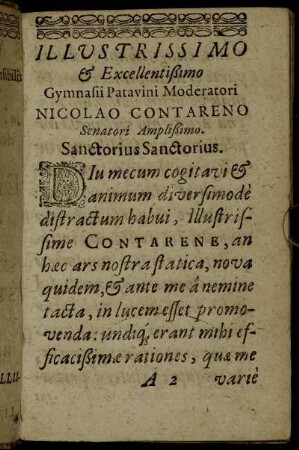 nsibilis
ILLVSTRISSIMO
& Excellentißimo
Gymnasii Patavini Moderatori
NICOLAO CONTARENO
Senatori Amplißimo.
Sanctorius Sanctorius.
DIu mecum cogitavi &
animum diversimodè
distractum habui, Illustris-
sime CONTARENE, an
hæc ars nostra statica, nova
quidem, & ante me à nemine
tacta, in lucem esset promo-
venda: undiq; erant mihi ef-
ficacißimæ rationes, quæ me
LLU-
A 2 variè